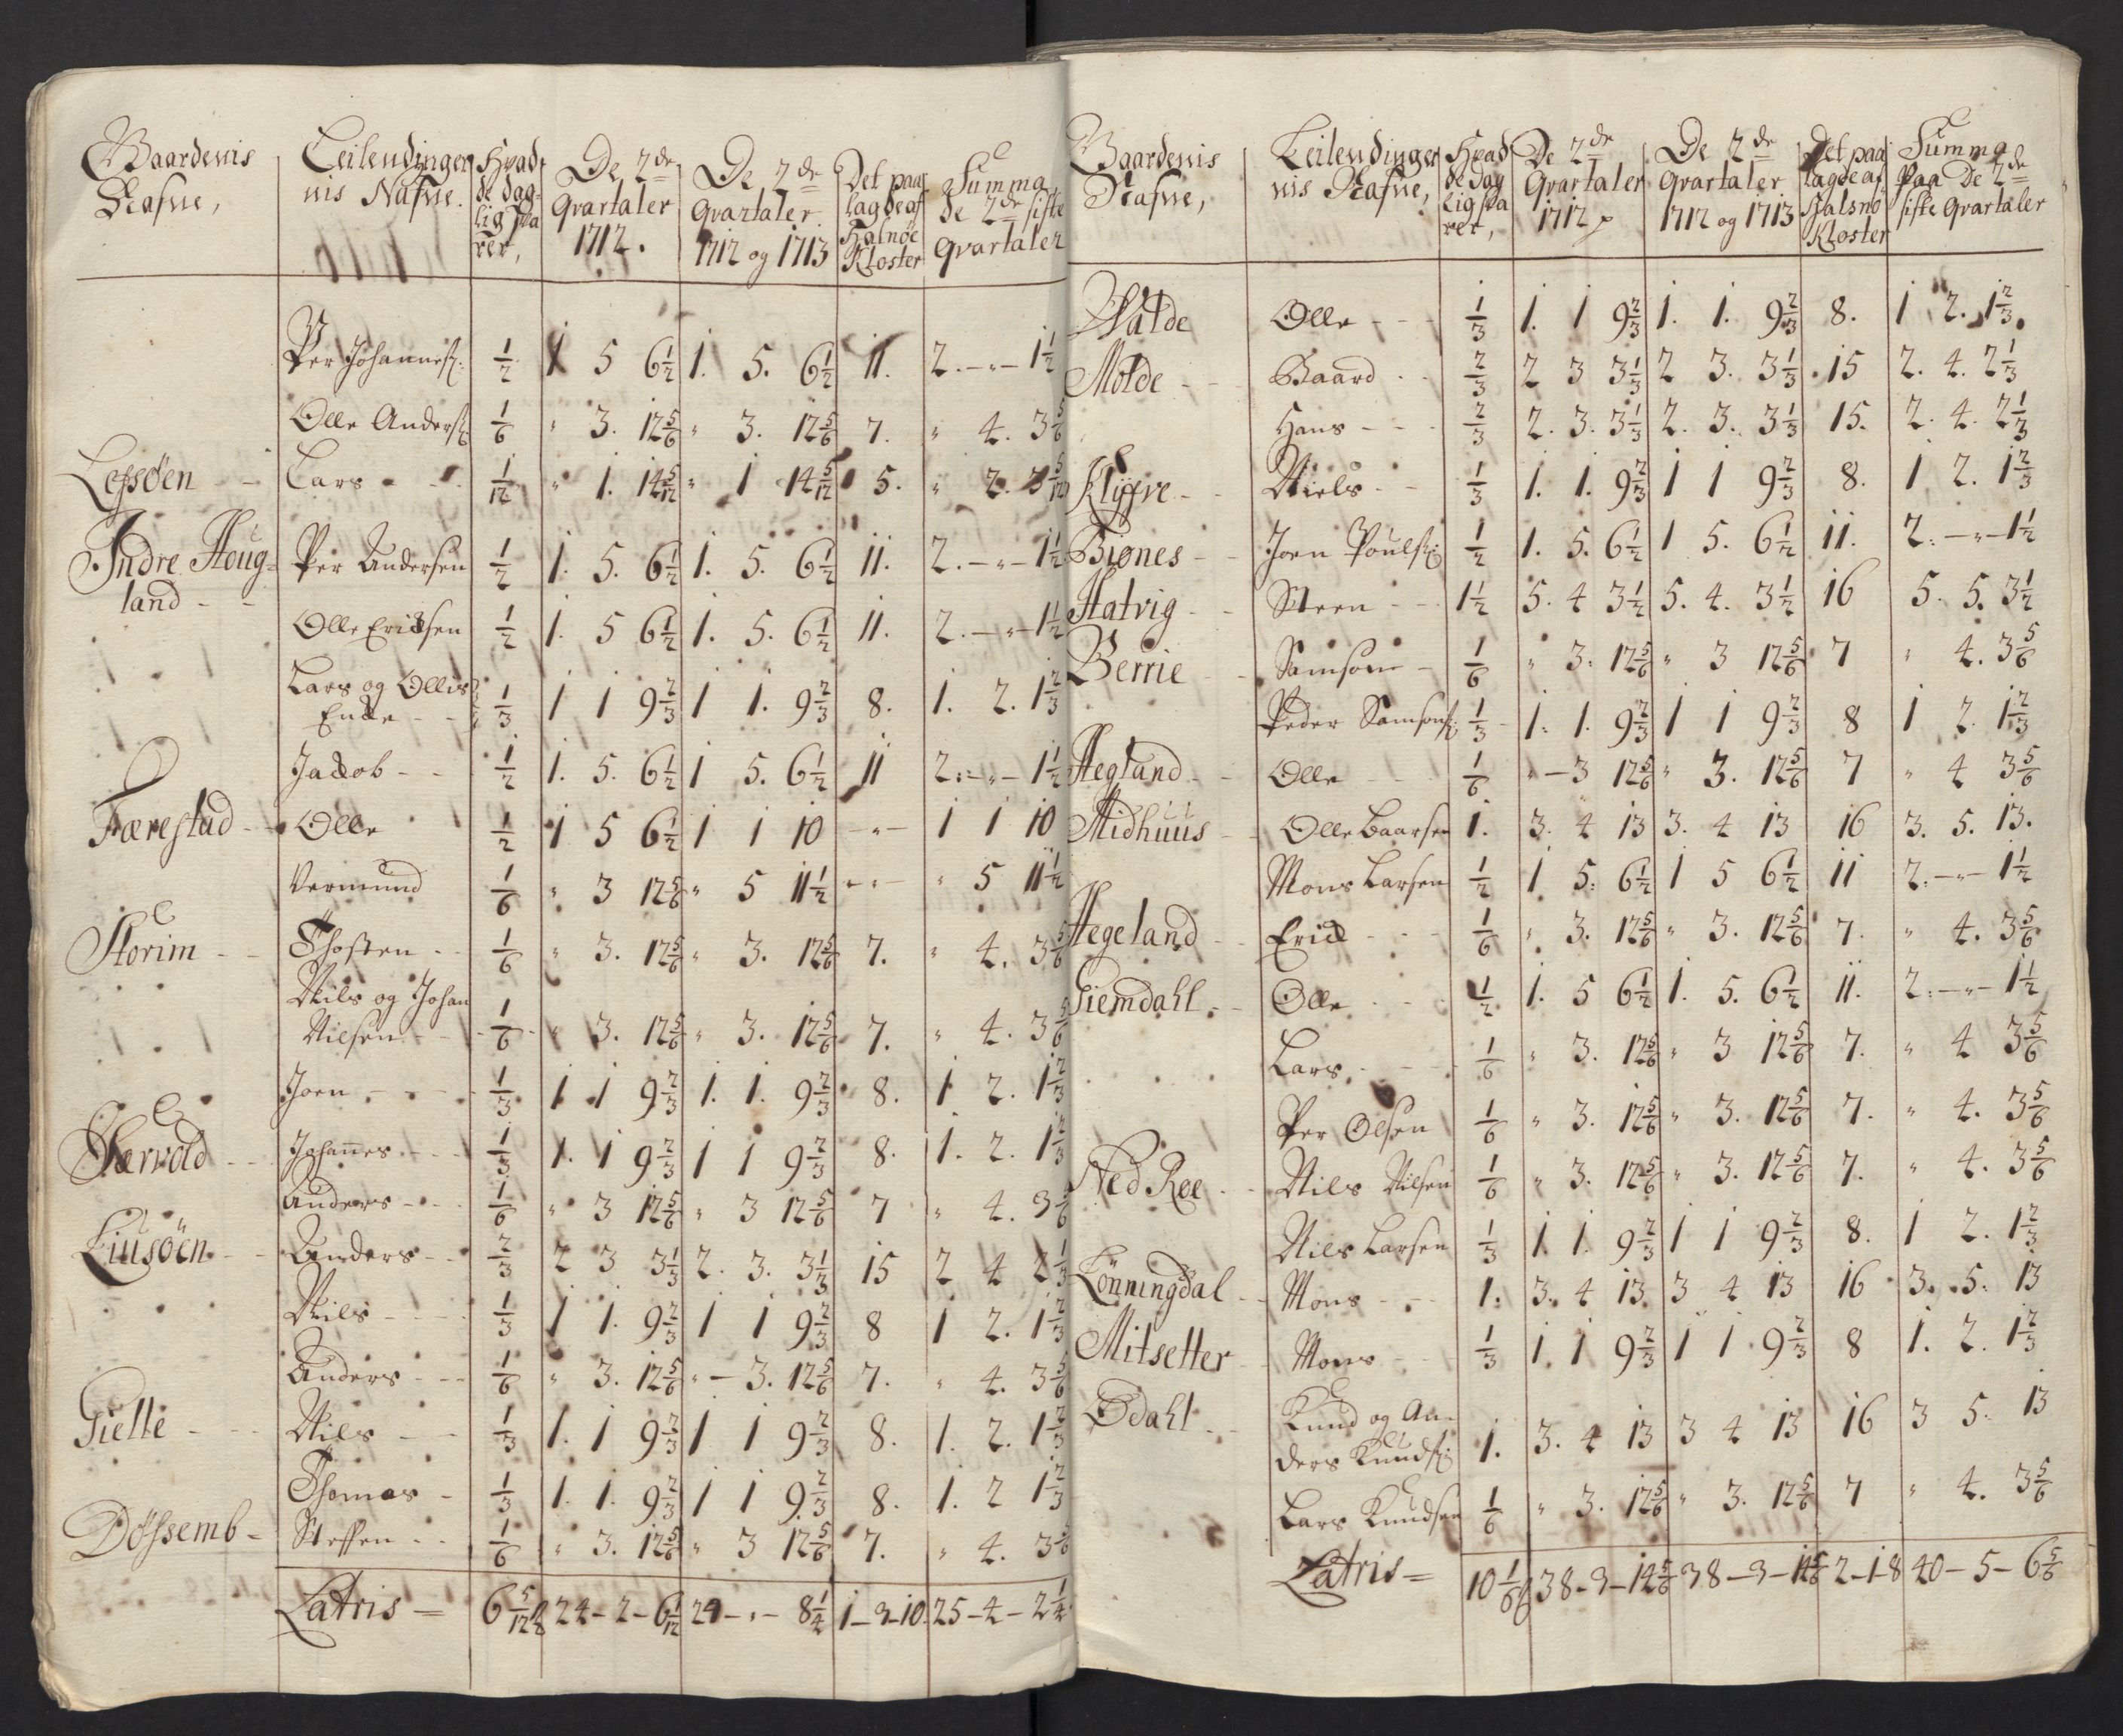 Gaardenis Nafne, | Leilendingernis Nafne. | Hvad de daglig Svarer, | De 2de Qvartaler 1712. | De 2de Qvartaler 1712 og 1713 | Det paalagde af Halsnøe Kloster | Summa de 2de siste Qvartaler
Per Johannes: 1/2 1 5 6 1/2 1. 5. 6 1/2 11. 2. - „ - 1 1/2
Olle Anders: 1/6 „ 3. 12 5/6 „ 3. 12 5/6 7. „ 4. 3 5/6
Lepsöen - - Lars - 1/12 „ 1. 14 5/12 „ 1 14 5/12 5. „ 2. 3 5/12
Indre Houg= Per Andersen 1/2 1. 5. 6 1/2 1. 5. 6 1/2 11. 2. - „ - 1 1/2
land - -
Olle Ericksen 1/2 1. 5 6 1/2 1. 5. 6 1/2 11. 2. - „ - 1 1/2
Lars og Ollis
Encke - - 1/3 1 1 9 2/3 1 1. 9 2/3 8. 1. 2. 1 2/3
Jacob - - 1/2 1. 5. 6 1/2 1 5. 6 1/2 11 2: - „ - 1 1/2
Færestad - Olle 1/2 1 5 6 1/2 1 1 10 - „ - 1 1 10
Vermund 1/6 „ 3 12 5/6 „ 5 11 1/2 - „ - „ 5 11 1/2
Storim - - Thosten - 1/6 „ 3. 12 5/6 „ 3. 12 5/6 7. „ 4. 3 5/6
Nils og Johan
Nilsen - - 1/6 „ 3. 12 5/6 „ 3. 12 5/6 7. „ 4. 3 5/6
Joen - - - 1/3 1 1 9 2/3 1. 1. 9 2/3 8. 1 2. 1 2/3
Særvold - - Johannes - - 1/3 1. 1 9 2/3 1 1 9 2/3 8. 1. 2. 1 2/3
Anders - - 1/6 „ 3 12 5/6 „ 3 12 5/6 7 „ 4. 3 5/6
Liusöen - - Anders - - 2/3 2 3 3 1/3 2. 3. 3 1/3 15 2 4 2 1/3
Nils - - - 1/3 1 1. 9 2/3 1 1 9 2/3 8 1 2. 1 2/3
Anders - - 1/6 „ 3. 12 5/6 „ - 3. 12 5/6 7. „ 4. 3 5/6
Gielle - - Nils - - 1/3 1. 1 9 2/3 1 1 9 2/3 8. 1. 2. 1 2/3
Thomas - 1/3 1. 1. 9 2/3 1 1 9 2/3 8. 1. 2 1 2/3
Dössemb - Steffen - - 1/6 „ 3. 12 5/6 „ 3 12 5/6 7. „ 4. 3 5/6
Latris = 6 5/12 24 - 2 - 6 1/12 24 - „ - 8 1/4 1 - 3 - 10. 25 - 4 - 2 1/4
Gaardenis Nafne, | Leilendingernis Nafne, | Hvad de daglig Svarer, | De 2de Qvartaler 1712 | De 2de Qvartaler 1712 og 1713 | Det paalagde af Halsnö Kloster | Summa Paa De 2de siste Qvartaler
Valde Olle - - 1/3 1. 1 9 2/3 1. 1. 9 2/3 8. 1 2. 1 2/3
Molde - - Baard - - 2/3 2 3 3 1/3 2 3. 3 1/3 15 2. 4. 2 1/3
Hans - - 2/3 2. 3. 3 1/3 2. 3. 3 1/3 15. 2. 4. 2 1/3
Klyfve - - Niels - - 1/3 1. 1. 9 2/3 1 1 9 2/3 8. 1 2. 1 2/3
Biønes - - Joen Pouls: 1/2 1. 5. 6 1/2 1 5. 6 1/2 11. 2: - „ - 1 1/2
Hatvig - - Steen - - 1 1/2 5. 4 3 1/2 5. 4. 3 1/2 16 5. 5. 3 1/2
Berrie - - Samson - 1/6 „ 3. 12 5/6 „ 3 12 5/6 7 „ 4. 3 5/6
Peder Samsons: 1/3 1. 1. 9 2/3 1 1 9 2/3 8 1 2. 1 2/3
Hegland - - Olle - - 1/6 „ - 3 12 5/6 „ 3. 12 5/6 7 „ 4 3 5/6
Midhuus - - Olle Baarsen 1. 3. 4 13 3. 4 13 16 3. 5. 13.
Mons Larsen 1/2 1 5. 6 1/2 1 5 6 1/2 11 2. - „ - 1 1/2
Hegeland - - Erick - - 1/6 „ 3. 12 5/6 „ 3. 12 5/6 7. „ 4. 3 5/6
Giemdahl - - Olle - - 1/2 1. 5 6 1/2 1. 5. 6 1/2 11. 2: - „ - 1 1/2
Lars - - 1/6 „ 3. 12 5/6 „ 3 12 5/6 7. „ 4 3 5/6
Per Olsen 1/6 „ 3. 12 5/6 „ 3. 12 5/6 7. „ 4. 3 5/6
Ned Røe - - Nils Nilsen 1/6 „ 3. 12 5/6 „ 3. 12 5/6 7. „ 4. 3 5/6
Nils Larsen 1/3 1 1. 9 2/3 1 1 9 2/3 8. 1 2. 1 2/3
Lönningdal - - Mons - - 1. 3. 4 13. 3 4 13 16 3. 5. 13
Mitsetter - - Mons - - 1/3 1. 1 9 2/3 1 1 9 2/3 8 1. 2. 1 2/3
Ødahl - - Knud og An-
ders Knuds: 1. 3. 4 13 3 4 13 16 3 5. 13
Lars Knudsen 1/6 „ 3. 12 5/6 „ 3. 12 5/6 7 „ 4. 3 5/6
Latris = 10 1/6 38 - 3 - 14 5/6 38 - 3 - 14 5/6 2 - 1 - 8 40 - 5 - 6 5/6